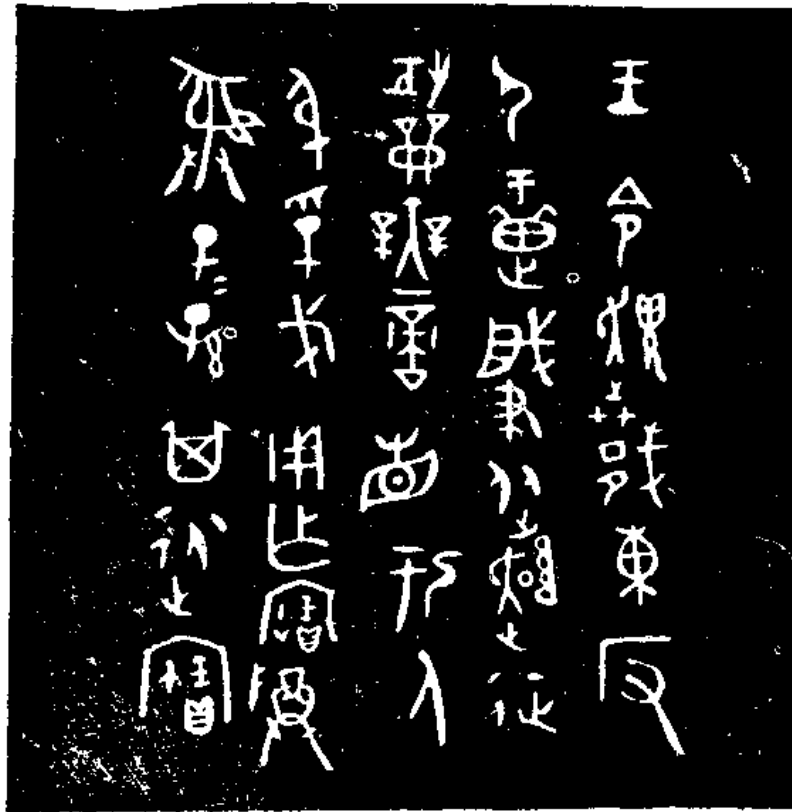 王令趞𢦏東反
尸疐肇從趞征
攻龠無啻省于人
身孚戈用乍寶尊
彝子=孫其永寶